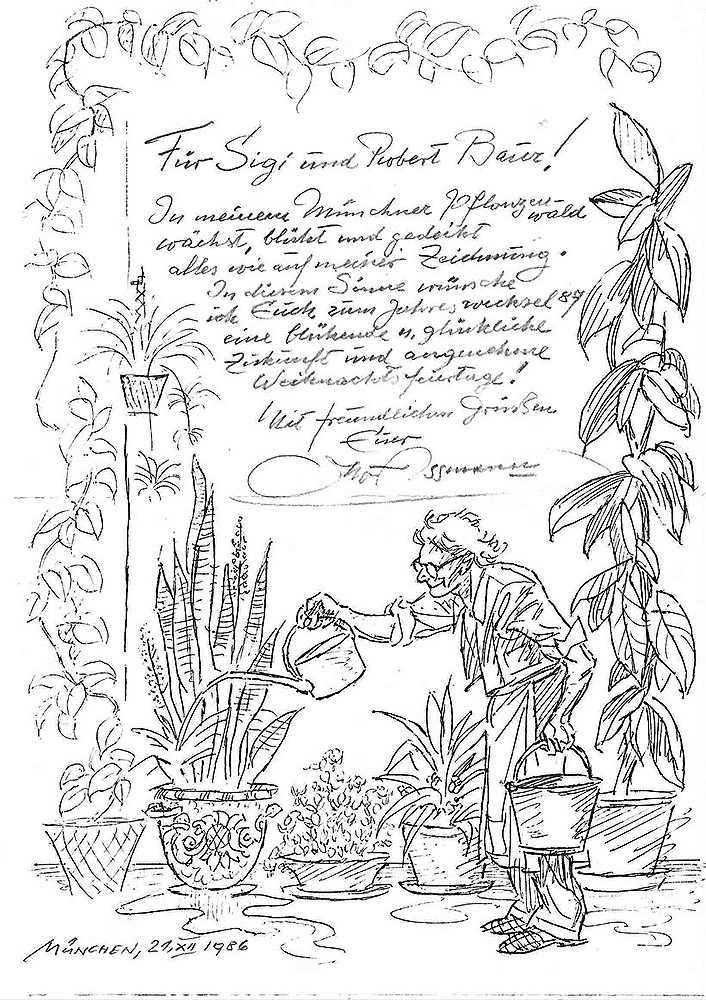 Für Sigi und Robert Baur!
In meinem Münchner Pflanzen-
wald
wächst, blüht und gedeiht
alles wie auf meiner Zeichnung.
In diesem Sinne wünsche
ich Euch zum Jahreswechsel 87
eine blühende u. glückliche
Zukunft und angenehme
Weihnachtsfeiertage!
Mit freundlichen Grüßen
Euer
MÜNCHEN, 21. XII 1986